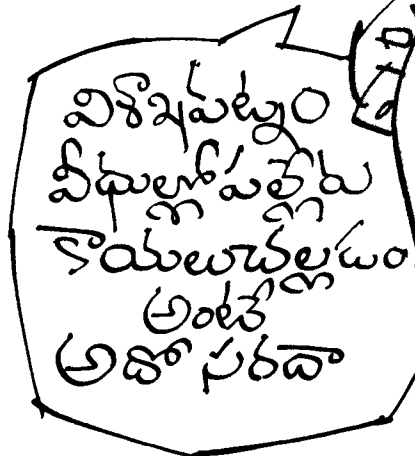 విశాఖపట్నం
వీధుల్లో పల్లేరు
కాయలు చల్లడం
అంటే
అదో సరదా